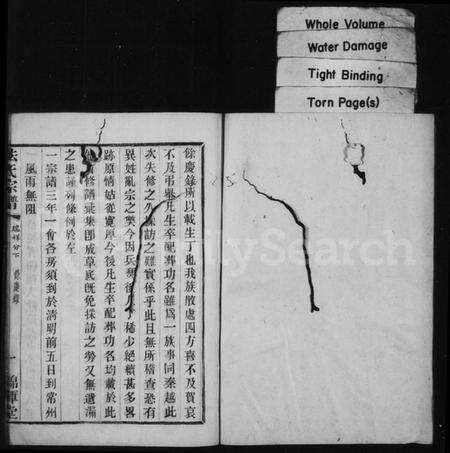 Whole Volume
Water Damage
Tight Binding
Torn Page(s)
餘慶錄所以載生丁也我族散處四方喜不及賀哀
不及弔舉凡生卒配葬功名雖爲一族事同秦越此
次失修之久採訪之難實係乎此且無所稽查恐有
異姓亂宗之弊今因兵燹後人丁稀少絕續甚多畧
跡原情姑從寬厚今後凡生卒配葬功名均載於此
修譜彙集即成草底旣免採訪之勞又無遺漏
之患謹列條例於左
一宗譜三年一會各房須到於清明前五日到常州
風雨無阻
氏宗譜
餘慶錄
一
錦暉堂
FamilySearch